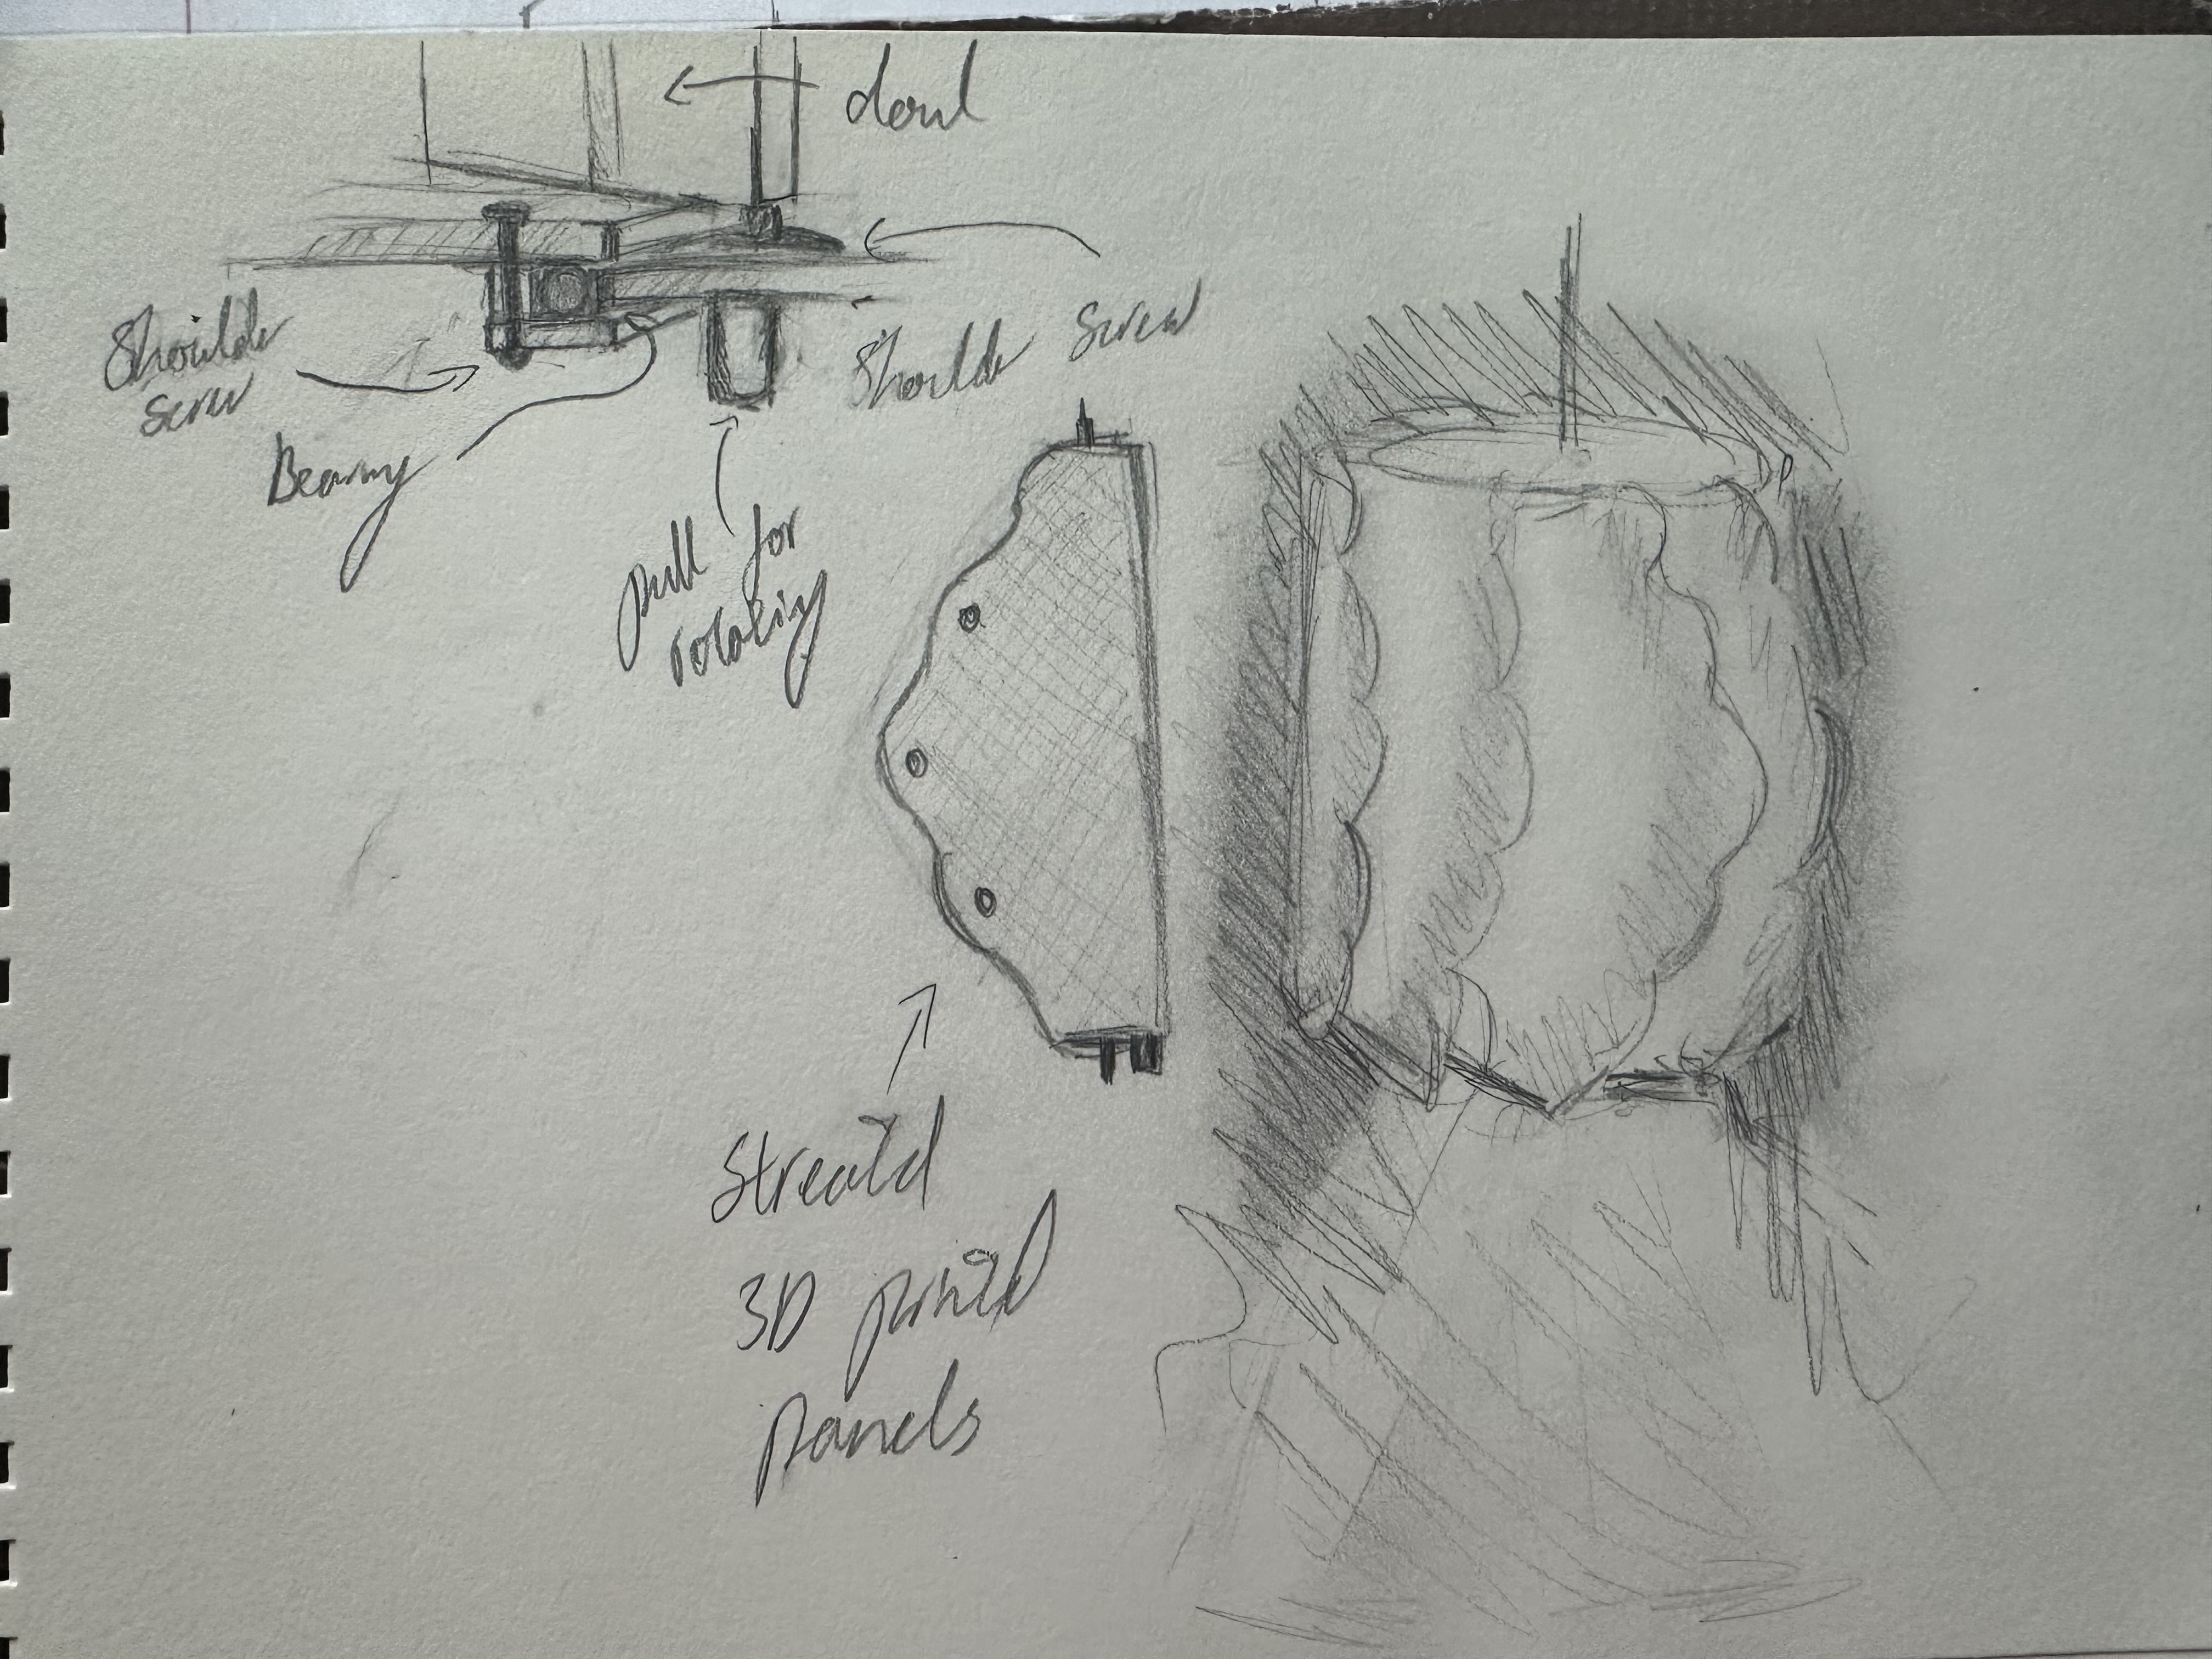 dowl
Shoulder
screw
Shoulder screw
Bearing
pull for
rotating
Streatd
3D printd
panels